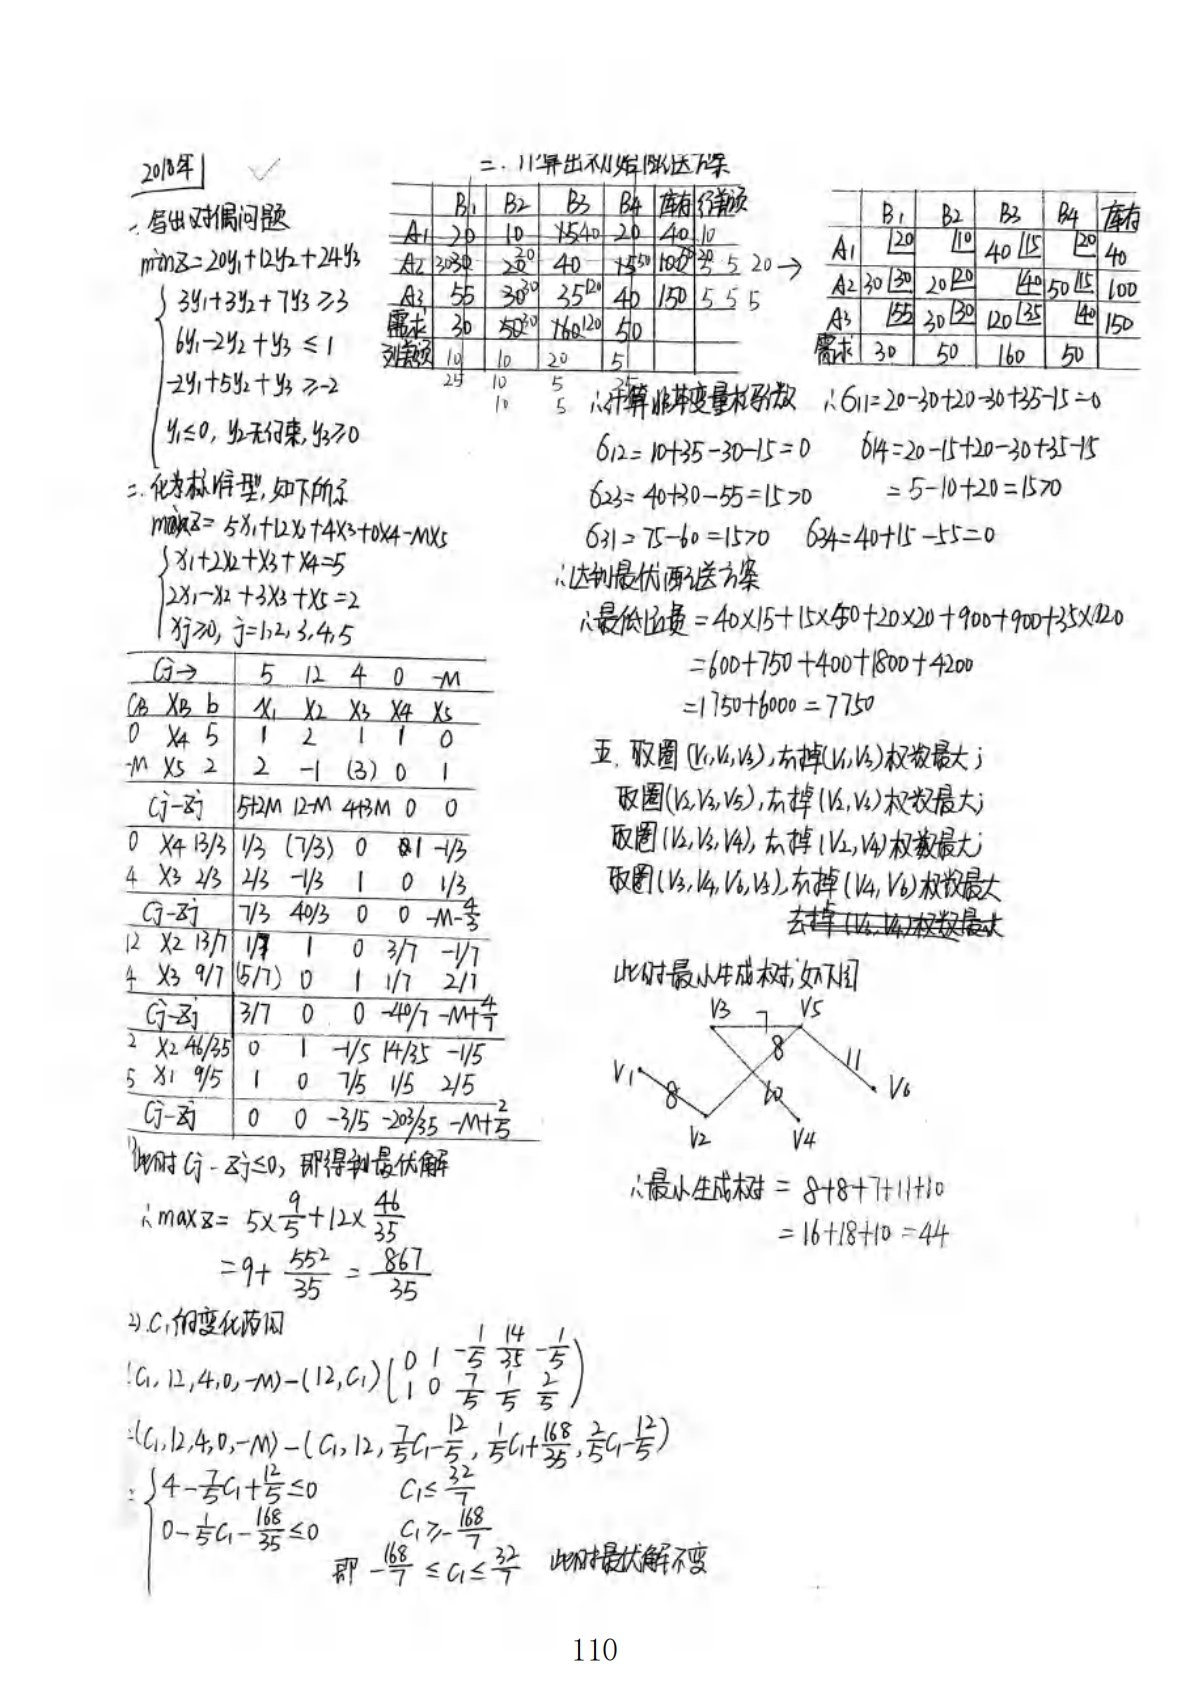 2018年
一.写出对偶问题
minZ=20y1+12y2+24y3
3y1+3y2+7y3≥3
6y1-2y2+y3≤1
-2y1+5y2+y3≥-2
y1≤0, y2无约束, y3≥0
二.化为标准型,如下所示
maxZ=5x1+12x2+4x3+0x4-Mx5
x1+2x2+x3+x4=5
2x1-x2+3x3+x5=2
xj≥0, j=1,2,3,4,5
Cj→ 5 12 4 0 -M
CB XB b X1 X2 X3 X4 X5
0 X4 5 1 2 1 1 0
-M X5 2 2 -1 (3) 0 1
Cj-Zj 5+2M 12-M 4+3M 0 0
0 X4 13/3 1/3 (7/3) 0 1 -1/3
4 X3 2/3 2/3 -1/3 1 0 1/3
Cj-Zj 7/3 40/3 0 0 -M-4/3
12 X2 13/7 1/7 1 0 3/7 -1/7
4 X3 9/7 (5/7) 0 1 1/7 2/7
Cj-Zj 3/7 0 0 -40/7 -M+4/7
2 X2 46/35 0 1 -1/5 14/35 -1/5
5 X1 9/5 1 0 7/5 1/5 2/5
Cj-Zj 0 0 -3/5 -203/35 -M+2/5
1)此时Cj-Zj≤0, 即得到最优解
∴maxZ=5×9/5+12×46/35
=9+552/35=867/35
2).C1的变化范围
(C1,12,4,0,-M)-(12,C1)(0 1 -1/5 14/35 -1/5
1 0 7/5 1/5 2/5)
=(C1,12,4,0,-M)-(C1,12,7/5C1-12/5,1/5C1+168/35,2/5C1-12/5)
∴ 4-7/5C1+12/5≤0 C1≤32/7
0-1/5C1-168/35≤0 C1≥-168/7
即 -168/7≤C1≤32/7 此时最优解不变
三.计算出初始配送方案
B1 B2 B3 B4 库存 行差额
A1 20 10 15 40 20 40 10
A2 30 30 20 20 40 15 50 100 5 5 20→
A3 55 30 30 35 120 40 150 5 5 5
需求 30 50 30 160 120 50
列差额 10 10 20 5
25 10 5 25
10 5
B1 B2 B3 B4 库存
A1 20 10 40 15 20 40
A2 30 30 20 20 40 50 15 100
A3 55 30 30 120 35 40 150
需求 30 50 160 50
∴计算非基变量检验数 ∴σ11=20-30+20-30+35-15=0
σ12=10+35-30-15=0 σ14=20-15+20-30+35-15
σ23=40+30-55=15>0 =5-10+20=15>0
σ31=75-60=15>0 σ34=40+15-55=0
∴达到最优配送方案
∴最低运费=40×15+15×50+20×20+900+900+35×120
=600+750+400+1800+4200
=1750+6000=7750
五.取圈(V1,V2,V3),去掉(V1,V3)权数最大;
取圈(V2,V3,V5),去掉(V2,V3)权数最大;
取圈(V2,V3,V4),去掉(V2,V4)权数最大;
取圈(V3,V4,V6,V5),去掉(V4,V6)权数最大
此时最小生成树如下图
V3 7 V5
8
V1 11
8 10 V6
V2 V4
∴最小生成树=8+8+7+11+10
=16+18+10=44
110